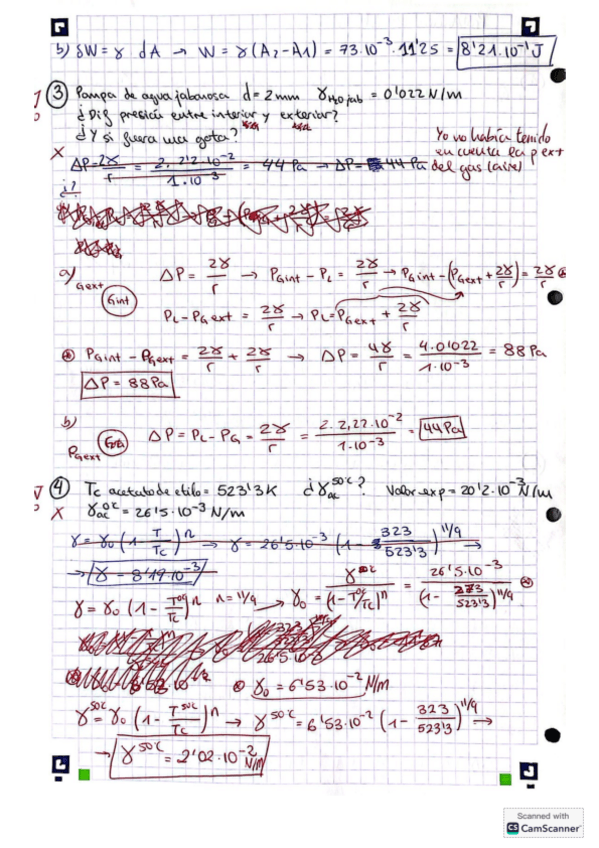 b) δW = γ dA → W = γ(A₂-A₁) = 73·10⁻³·11'25 = 8'21·10⁻¹ J
③ Pompa de agua jabonosa d = 2mm γH₂O jab = 0'022 N/m
¿Dif presión entre interior y exterior?
¿Y si fuera una gota?
Yo no había tenido
en cuenta la p ext
del gas (aire)
X ΔP = 2γ/r = 2. 2'2·10⁻²/1·10⁻³ = 44 Pa → ΔP = 44 Pa
¿?
a) Gext Gint ΔP = 2γ/r → PGint - PL = 2γ/r → PGint - (PGext + 2γ/r) = 2γ/r ⊛
PL - PGext = 2γ/r → PL = PGext + 2γ/r
⊛ PGint - PGext = 2γ/r + 2γ/r → ΔP = 4γ/r = 4·0'022/1·10⁻³ = 88 Pa
ΔP = 88 Pa
b)
PGext Gota ΔP = PL - PG = 2γ/r = 2·2,22·10⁻²/1·10⁻³ = 44 Pa
④ Tc acetato de etilo = 523'3K ¿γac⁵⁰ᶜ? Valor exp = 20'2·10⁻³ N/m
X γac⁰ᶜ = 26'5·10⁻³ N/m
γ = γ₀ (1 - T/Tc)ⁿ → γ = 26'5·10⁻³ (1 - 323/523'3)^11/9 →
→ γ = 8'19·10⁻³
γ = γ₀ (1 - T⁰ᶜ/Tc)ⁿ n = 11/9 → γ₀ = γ⁰ᶜ/(1 - T⁰/Tc)ⁿ = 26'5·10⁻³/(1 - 273/523'3)^11/9 ⊛
⊛ γ₀ = 6'53·10⁻² N/m
γ⁵⁰ᶜ = γ₀ (1 - T⁵⁰ᶜ/Tc)ⁿ → γ⁵⁰ᶜ = 6'53·10⁻² (1 - 323/523'3)^11/9 →
→ γ⁵⁰ᶜ = 2'02·10⁻² N/m
Scanned with
CS CamScanner